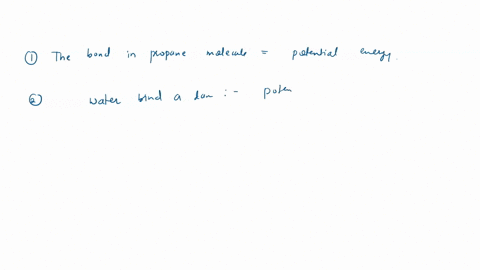 ① The bond in propane molecule = potential energy.
② water bind a dam :- poten